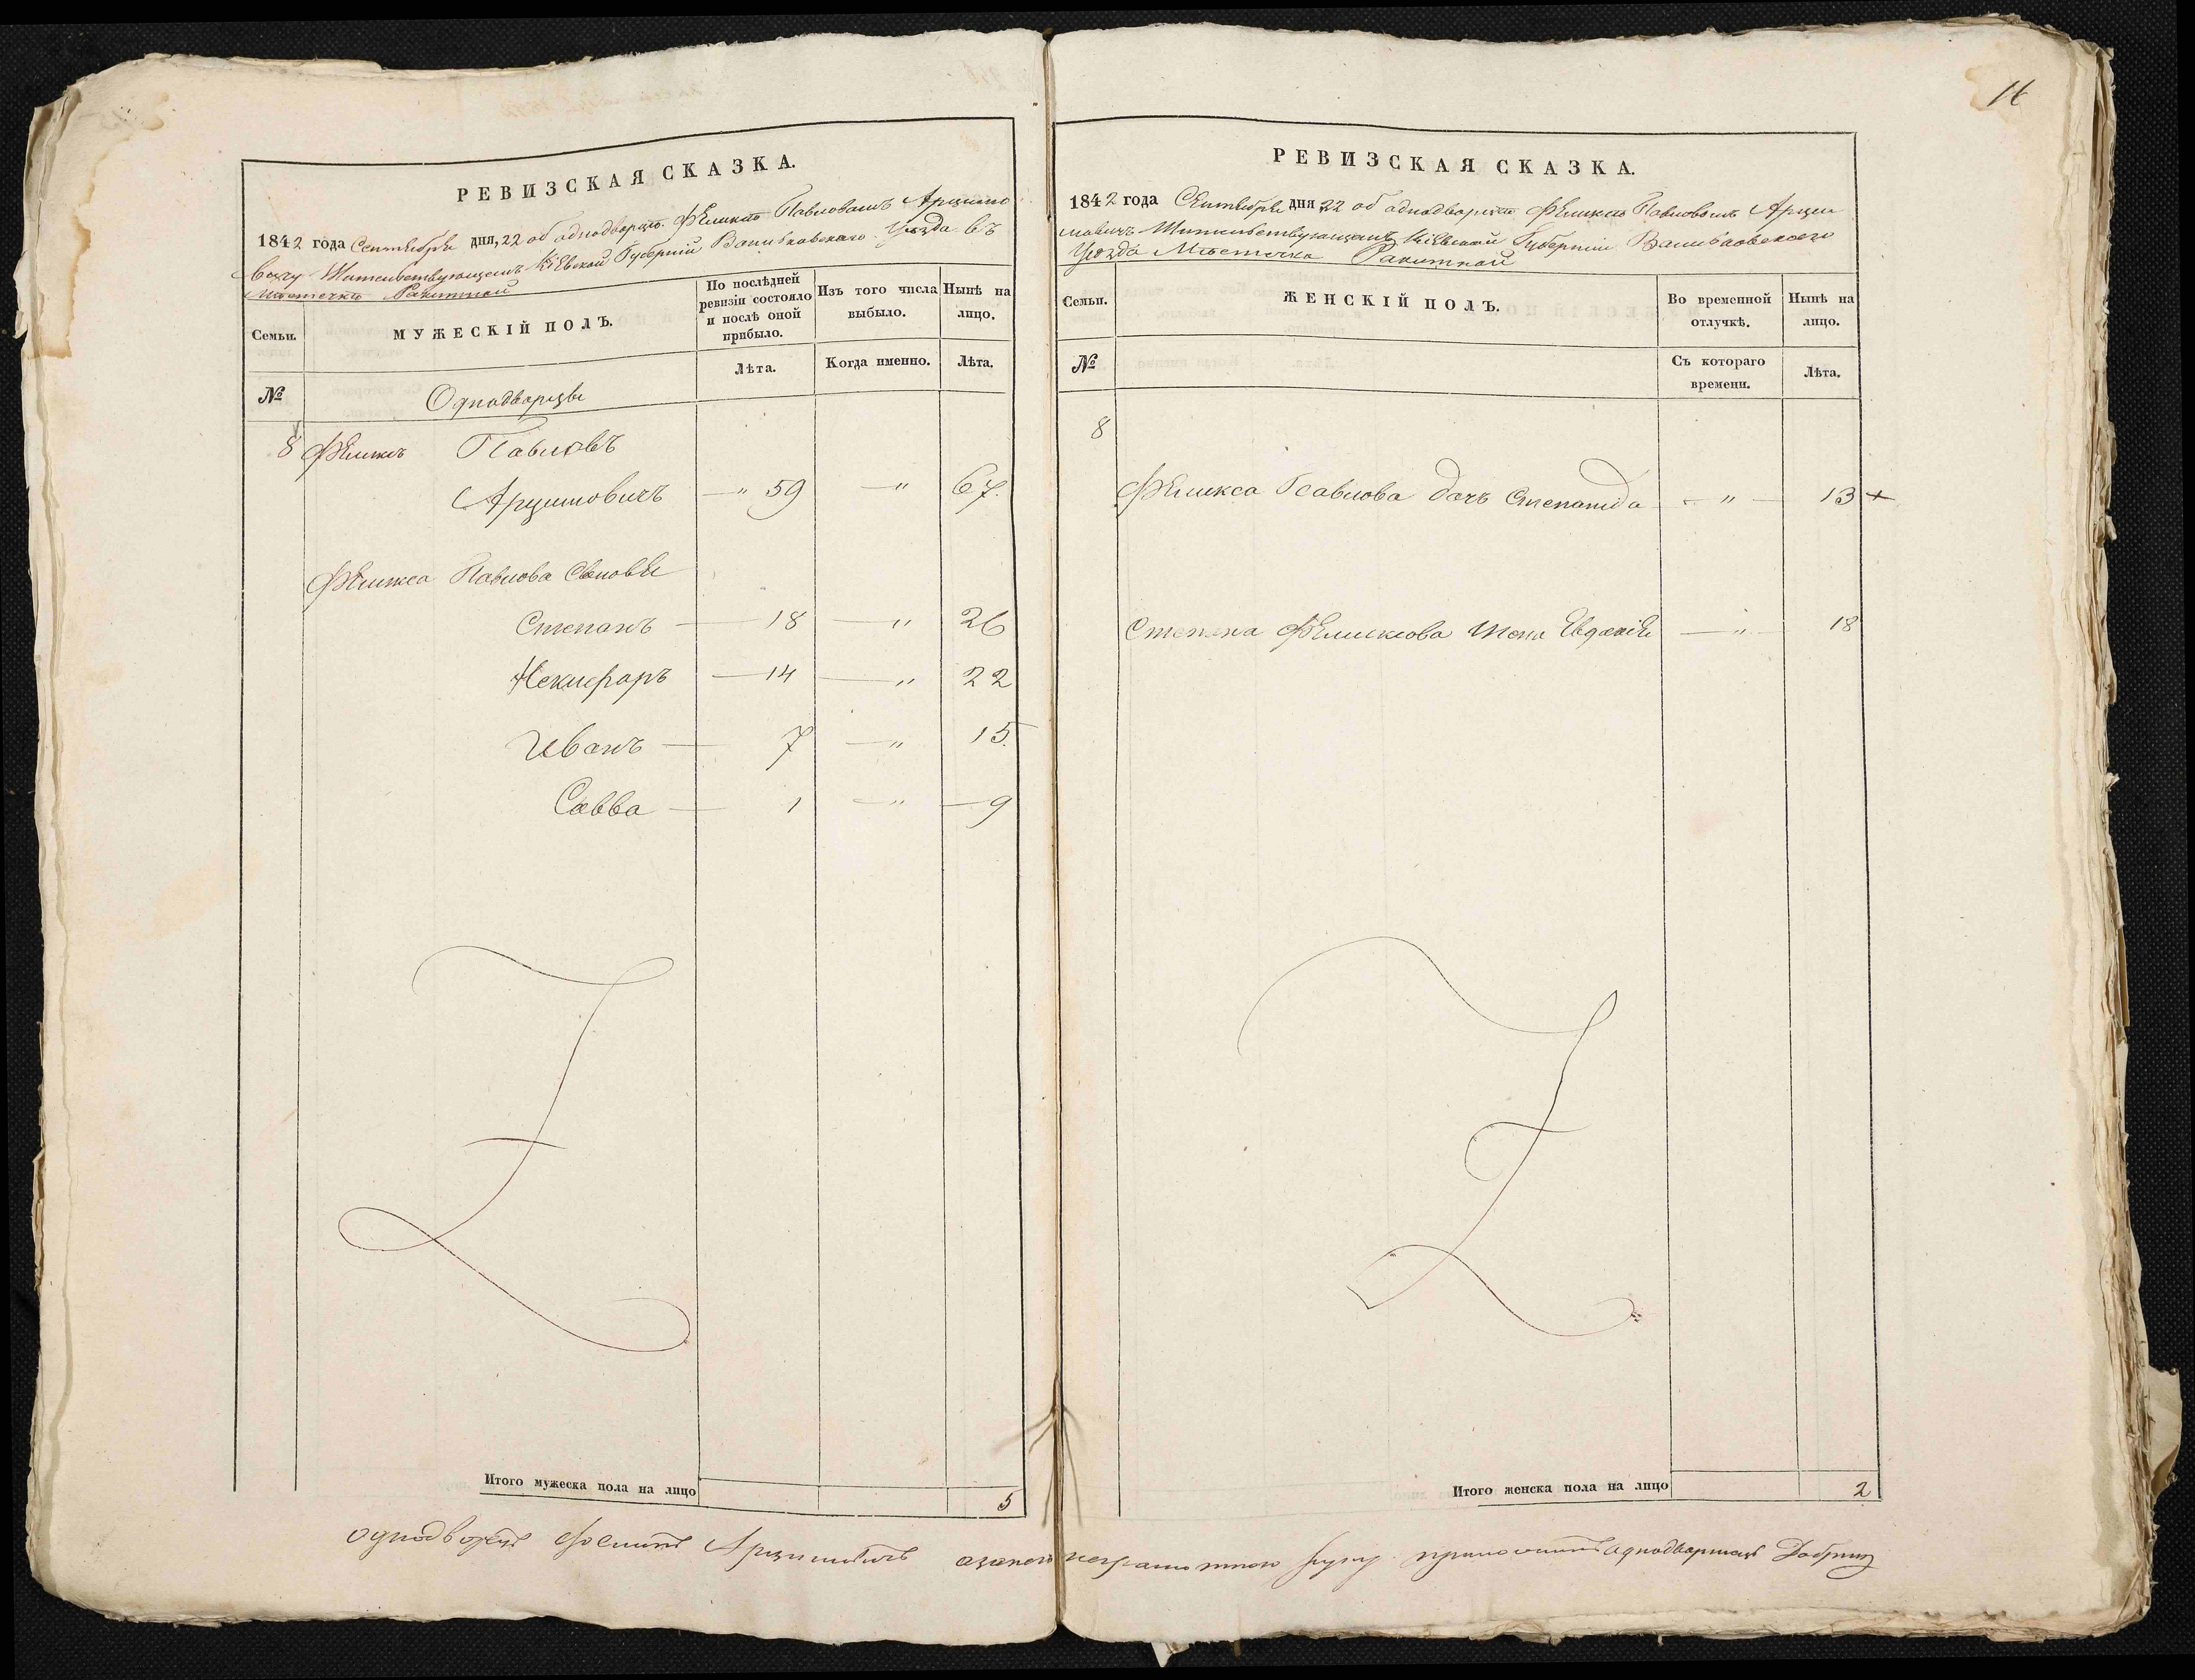 РЕВИЗСКАЯ СКАЗКА.
1842 года Сентября дня, 22 об однодворце Феликсе Павловомъ Арцимо
вичу Жительствующемъ Кіевской Губерніи Васильковскаго Уезда въ
местечке Ракитной
Семьи.
МУЖЕСКІЙ ПОЛЪ.
По послѣдней ревизіи состояло и послѣ оной прибыло.
Изъ того числа выбыло.
Нынѣ на лицо.
№
Однодворцы
Лѣта.
Когда именно.
Лѣта.
8 Феликсъ Павловъ
Арцимовичъ — " 59 — " 67.
Феликса Павлова Сыновья
Степанъ — 18 — " 26
Некифоръ — 14 — " 22
Иванъ — 7 — " 15.
Савва — 1 — " — 9
Итого мужеска пола на лицо 5
16
РЕВИЗСКАЯ СКАЗКА.
1842 года Сентября дня 22 об однодворце Феликсе Павловомъ Арци
мовичъ Жительствующемъ Кіевской Губерніи Васильковскаго
Уезда Местечка Ракитной
Семьи.
ЖЕНСКІЙ ПОЛЪ.
Во временной отлучкѣ.
Нынѣ на лицо.
№
Съ котораго времени.
Лѣта.
8
Феликса Павлова дочь Степанида — " — 13 +
Степана Феликсова Жена Евдокія — " — 18
Итого женска пола на лицо 2
однодворецъ Арцимовичъ неграмотнаго руку приложилъ однодворецъ